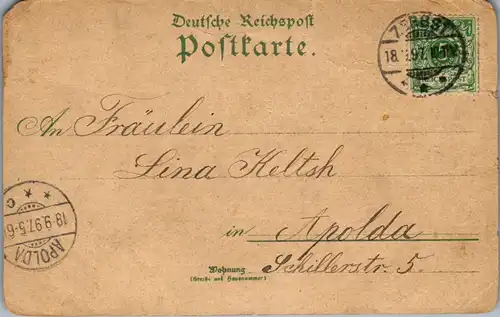 Deutsche Reichspost
Postkarte.
ZERBST
18. 97.
An Fräulein
Lina Keltsh
in Apolda
Wohnung
(Straße und Hausnummer)
Schillerstr. 5.
APOLDA
18.9.97.5-6
C